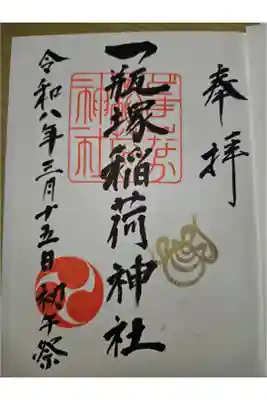 奉拝
一瓶塚稲荷神社
令和八年三月十五日 初午祭